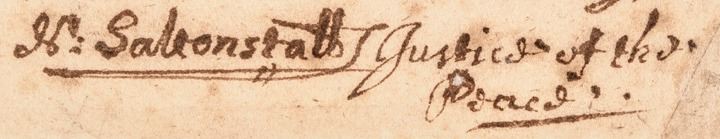 Nt: Saltonstall Justice of the
Peace.